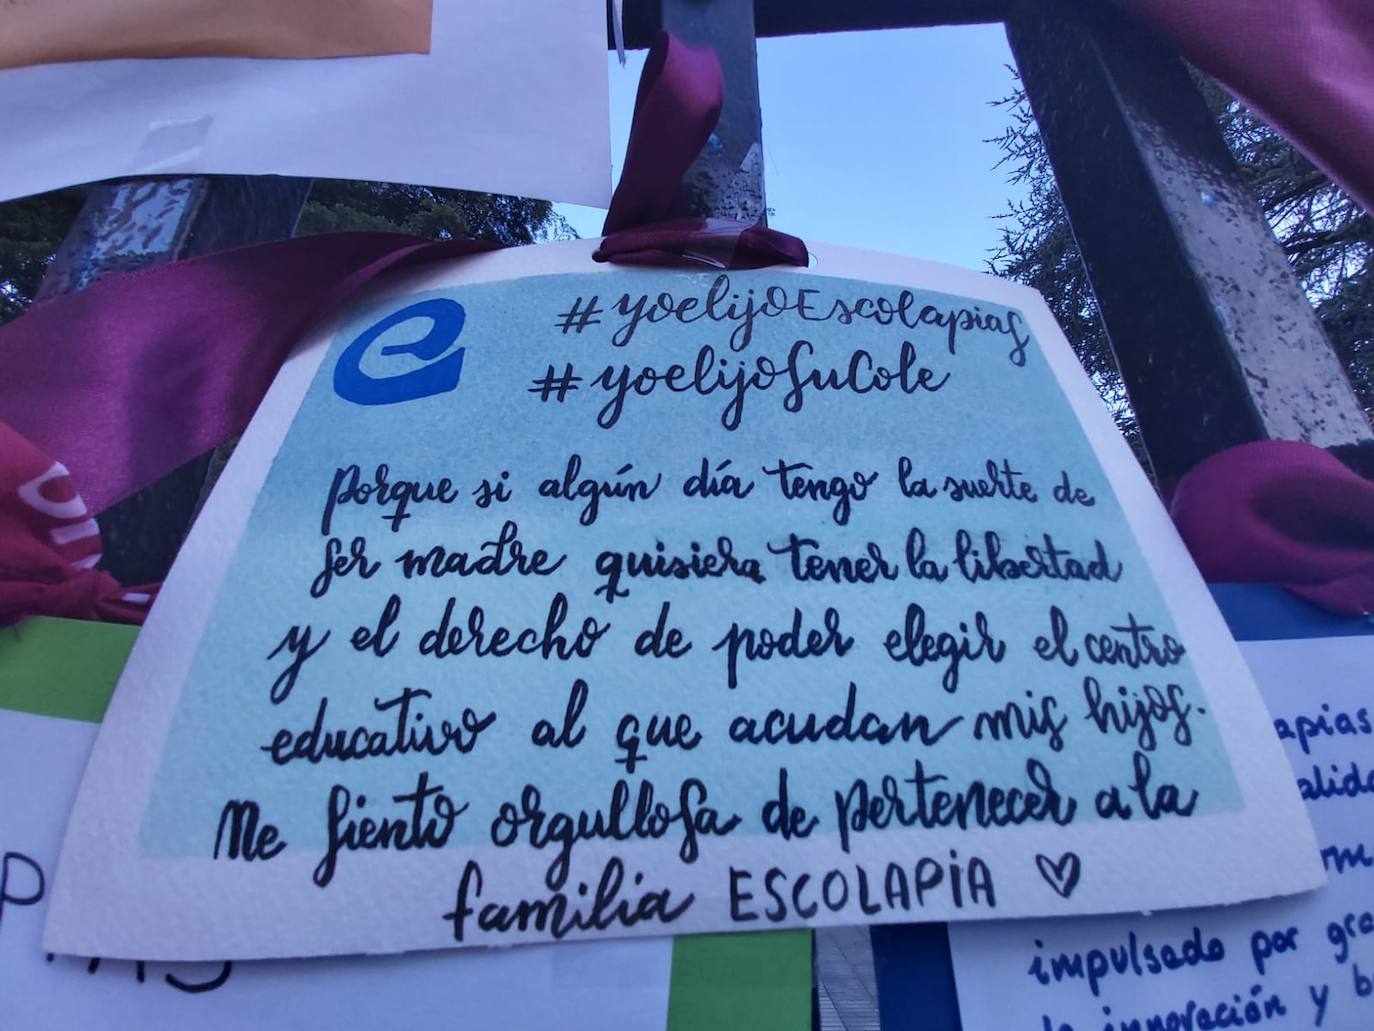 e
#yoelijoEscolapias
#yoelijoSuCole
Porque si algún día tengo la suerte de
ser madre quisiera tener la libertad
y el derecho de poder elegir el centro
educativo al que acudan mis hijos.
Me siento orgullosa de pertenecer a la
familia ESCOLAPIA
apias
impulsado por gra
la innovación y b